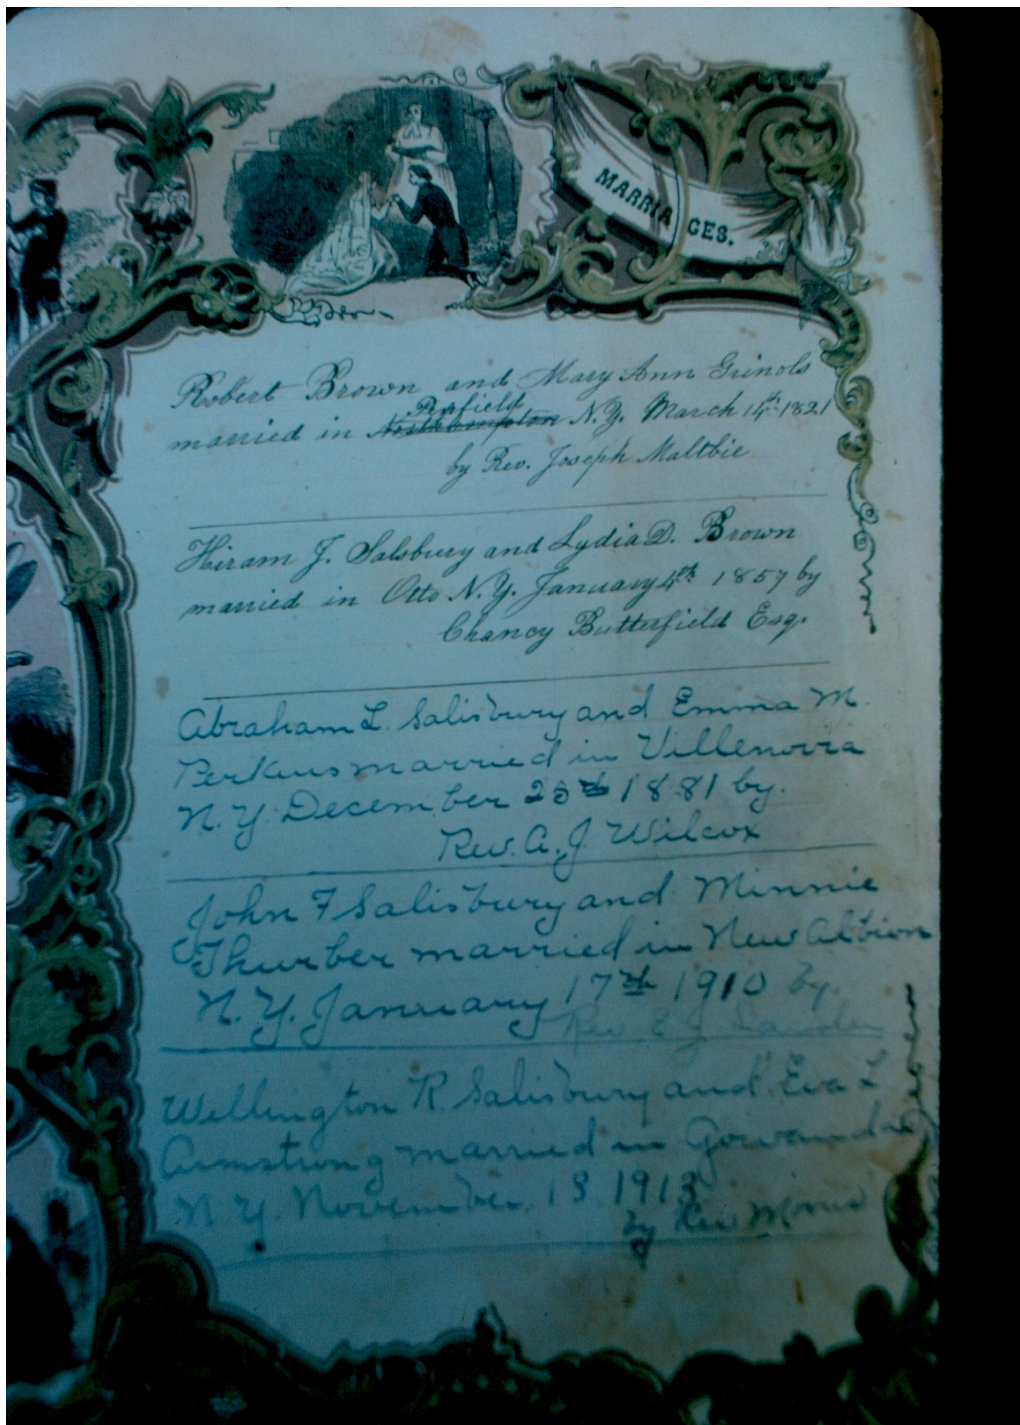 MARRIAGES.
Robert Brown and Mary Ann Grinols
Penfield
married in Northhampton N.Y. March 1821
by Rev. Joseph Maltbie
Hiram J. Salsbury and Lydia D. Brown
married in Otto N.Y. January 4th 1857 by
Chancy Butterfield Esq.
Abraham L. Salisbury and Emma M.
Perkins married in Villenovia
N.Y. December 25th 1881 by.
Rev. A. J. Wilcox
John F Salisbury and Minnie
Thurber married in New Albion
N.Y. January 17th 1910 by.
Rev E J
Wellington R. Salisbury and Eva L
Armstrong married in Gowanda
N.Y. November 18 1913
by Rev Morris